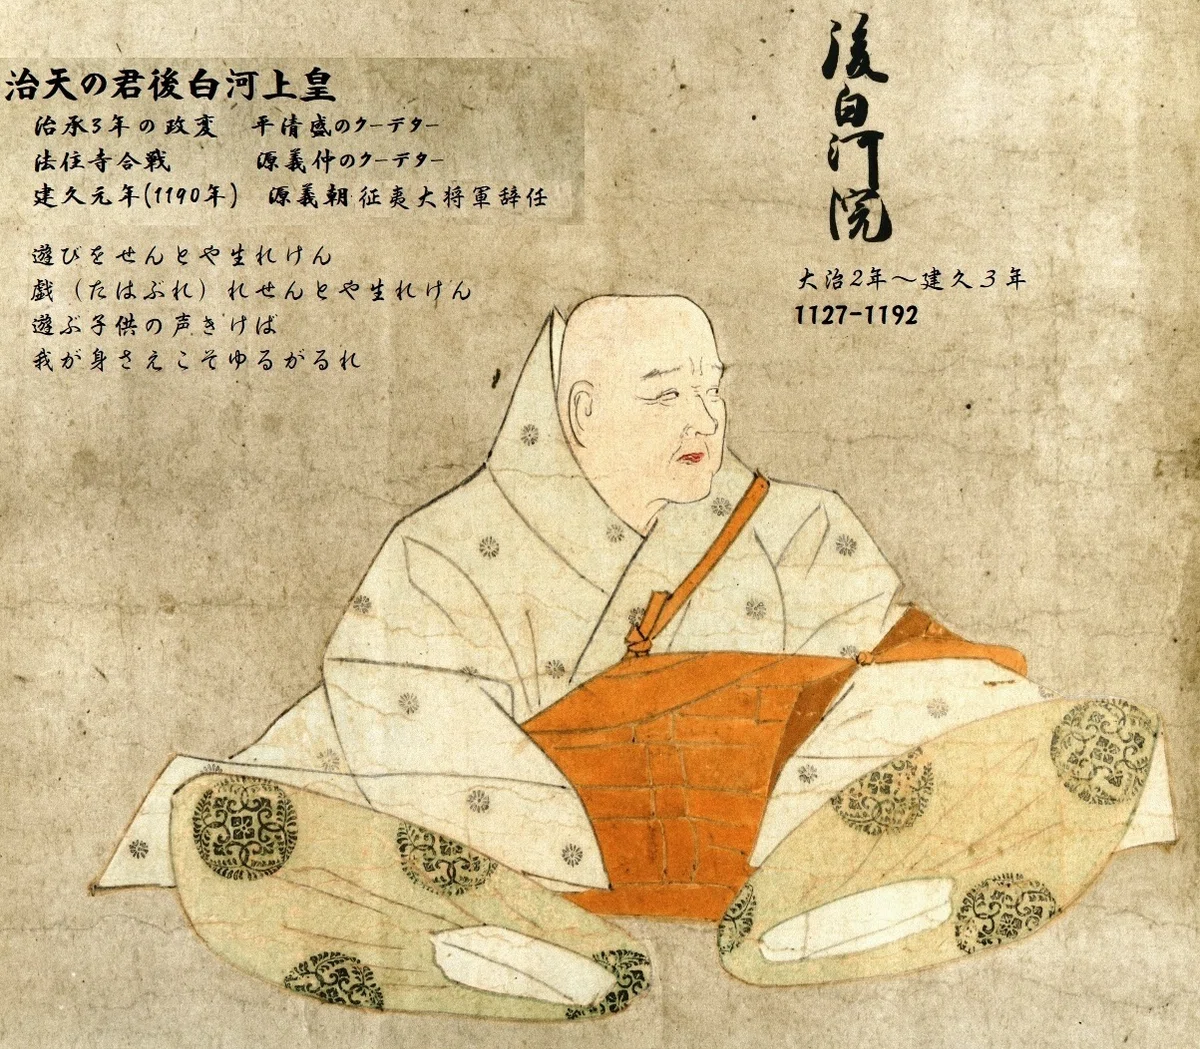 治天の君後白河上皇
治承3年の政変 平清盛のクーデター
法住寺合戦 源義仲のクーデター
建久元年(1190年) 源義朝征夷大将軍辞任
遊びをせんとや生れけん
戯（たはぶれ）れせんとや生れけん
遊ぶ子供の声きけば
我が身さえこそゆるがるれ
後白河院
大治2年～建久３年
1127-1192